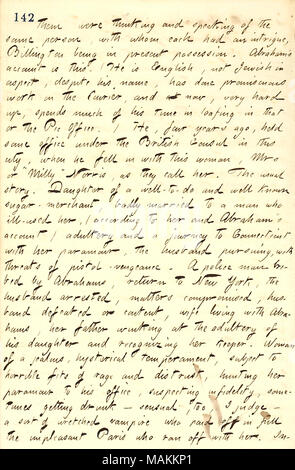 142
them were thinking and speaking of the
same person, with whom each had an intrigue,
Billington being in present possession. Abraham's
account is this. He is English, not Jewish in
aspect, despite his name, has done promiscuous
work on the Courier, and now, very hard
up, spends much of his time in loafing in that
or the Pic Office. He, four years ago, held
some office under the British Consul in this
city, when he fell in with this woman, Mrs
or "Milly" Norris, as they call her. The usual
story. Daughter of a well-to-do and well known
sugar merchant, badly married to a man who
ill-used her, (according to her and Abraham's
account,) adultery and a journey to Connecticut
with her paramour, the husband pursuing with
threats of pistol vengeance. A police man bri-
bed by Abrahams, return to New York, the
husband arrested, matters compromised, hus-
band defeated or content, wife living with Abra-
hams, her father winking at the adultery of
his daughter and recognizing her keeper. Woman
of a jealous, hysterical temperament, subject to
horrible fits of rage and distrust, hunting her
paramour to his office, suspecting infidelity, some-
times getting drunk — sensual, too, I judge —
a sort of wretched vampire who paid off in full
the unpleasant Paris who ran off with her. In-
alamy
Image ID: MAKKP1
www.alamy.com